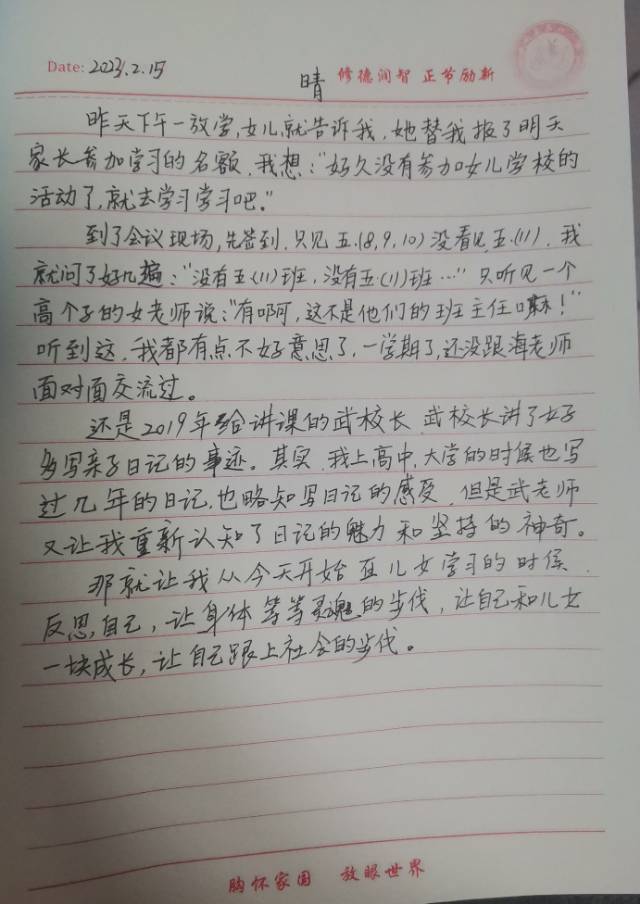 Date: 2023.2.15 晴 修德润智 正节励新
昨天下午一放学,女儿就告诉我,她替我报了明天
家长参加学习的名额,我想:“好久没有参加女儿学校的
活动了,就去学习学习吧。”
到了会议现场,先签到,只见五.(8,9,10)没看见五.(11),我
就问了好几遍:“没有五(11)班,没有五(11)班…”只听见一个
高个子的女老师说:“有啊,这不是他们的班主任嘛!”
听到这,我都有点不好意思了,一学期了,还没跟海老师
面对面交流过。
还是2019年给讲课的武校长,武校长讲了好
多写亲子日记的事迹。其实,我上高中,大学的时候也写
过几年的日记,也略知写日记的感受,但是武老师
又让我重新认知了日记的魅力和坚持的神奇。
那就让我从今天开始在儿女学习的时候,
反思自己,让身体等等灵魂的步伐,让自己和儿女
一块成长,让自己跟上社会的步伐。
胸怀家国 放眼世界